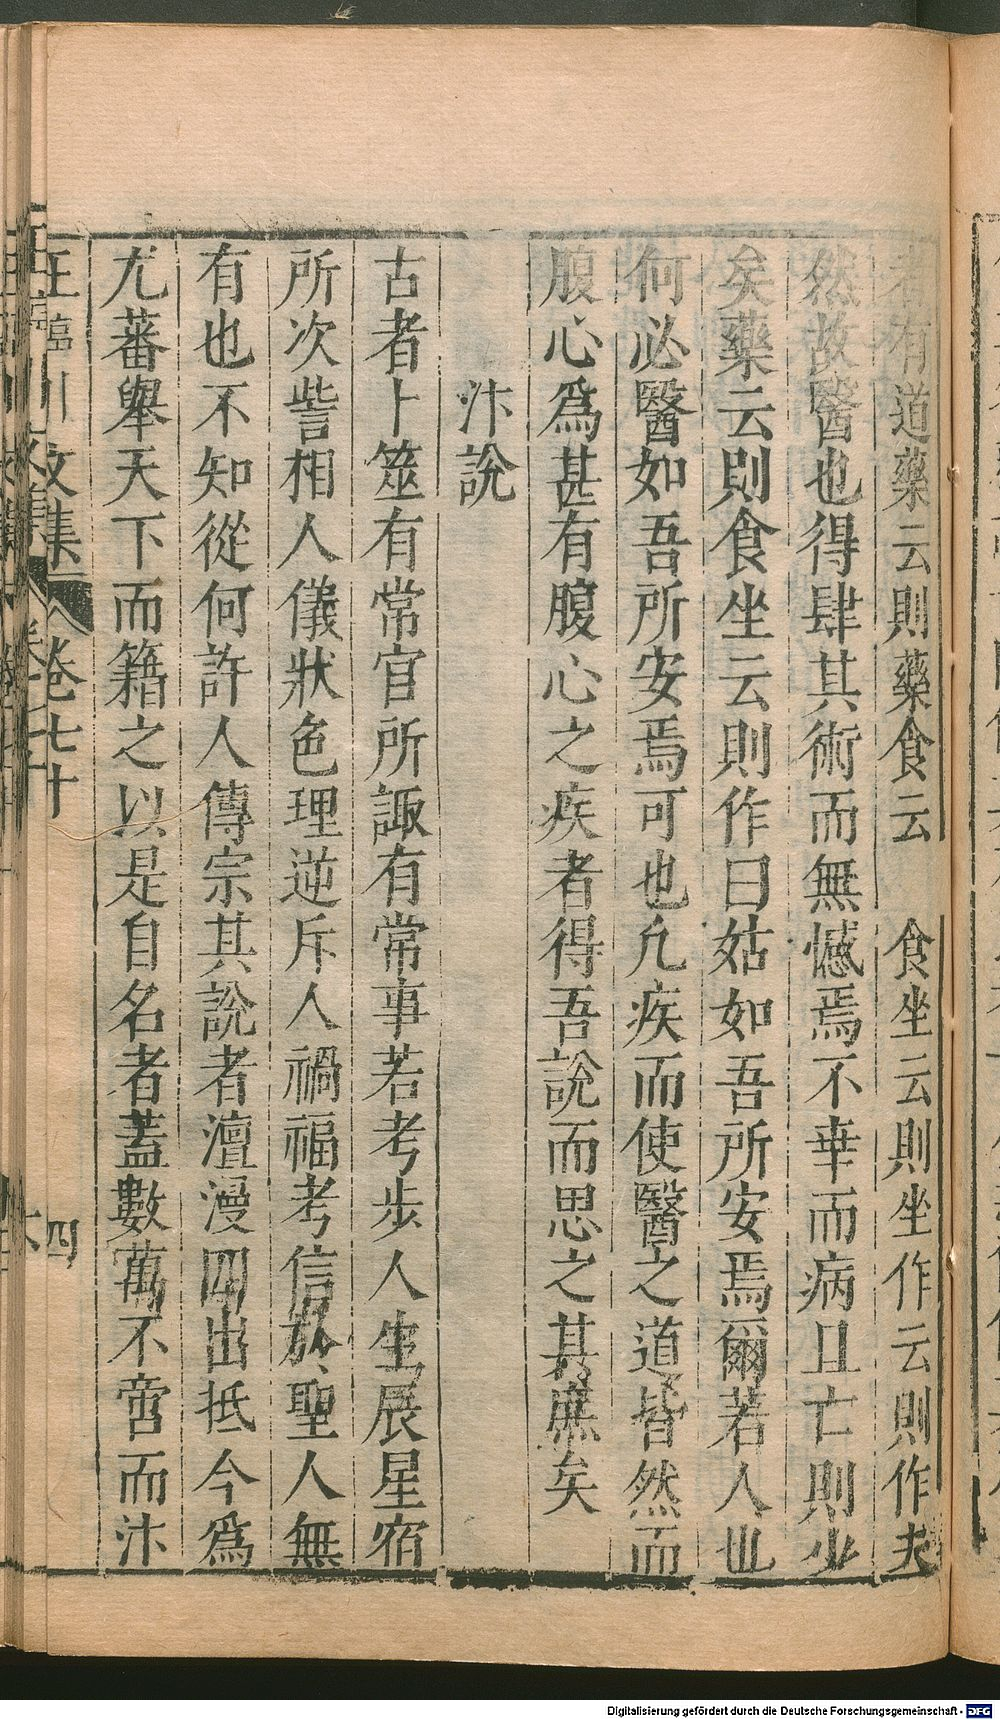 者有道藥云則藥食云　食坐云則坐作云則作夫
然故醫也得肆其術而無憾焉不幸而病且亡則少
矣藥云則食坐云則作曰姑如吾所安焉爾若人也
何必醫如吾所安焉可也凡疾而使醫之道皆然而
腹心爲甚有腹心之疾者得吾說而思之其庶矣
汴說
古者卜筮有常官所諏有常事若考步人生辰星宿
所次訾相人儀狀色理逆斥人禍福考信於聖人無
有也不知從何許人傳宗其說者澶漫四出抵今爲
尤蕃舉天下而籍之以是自名者蓋數萬不啻而汴
王臨川文集 卷七十 四
Digitalisierung gefördert durch die Deutsche Forschungsgemeinschaft - DFG